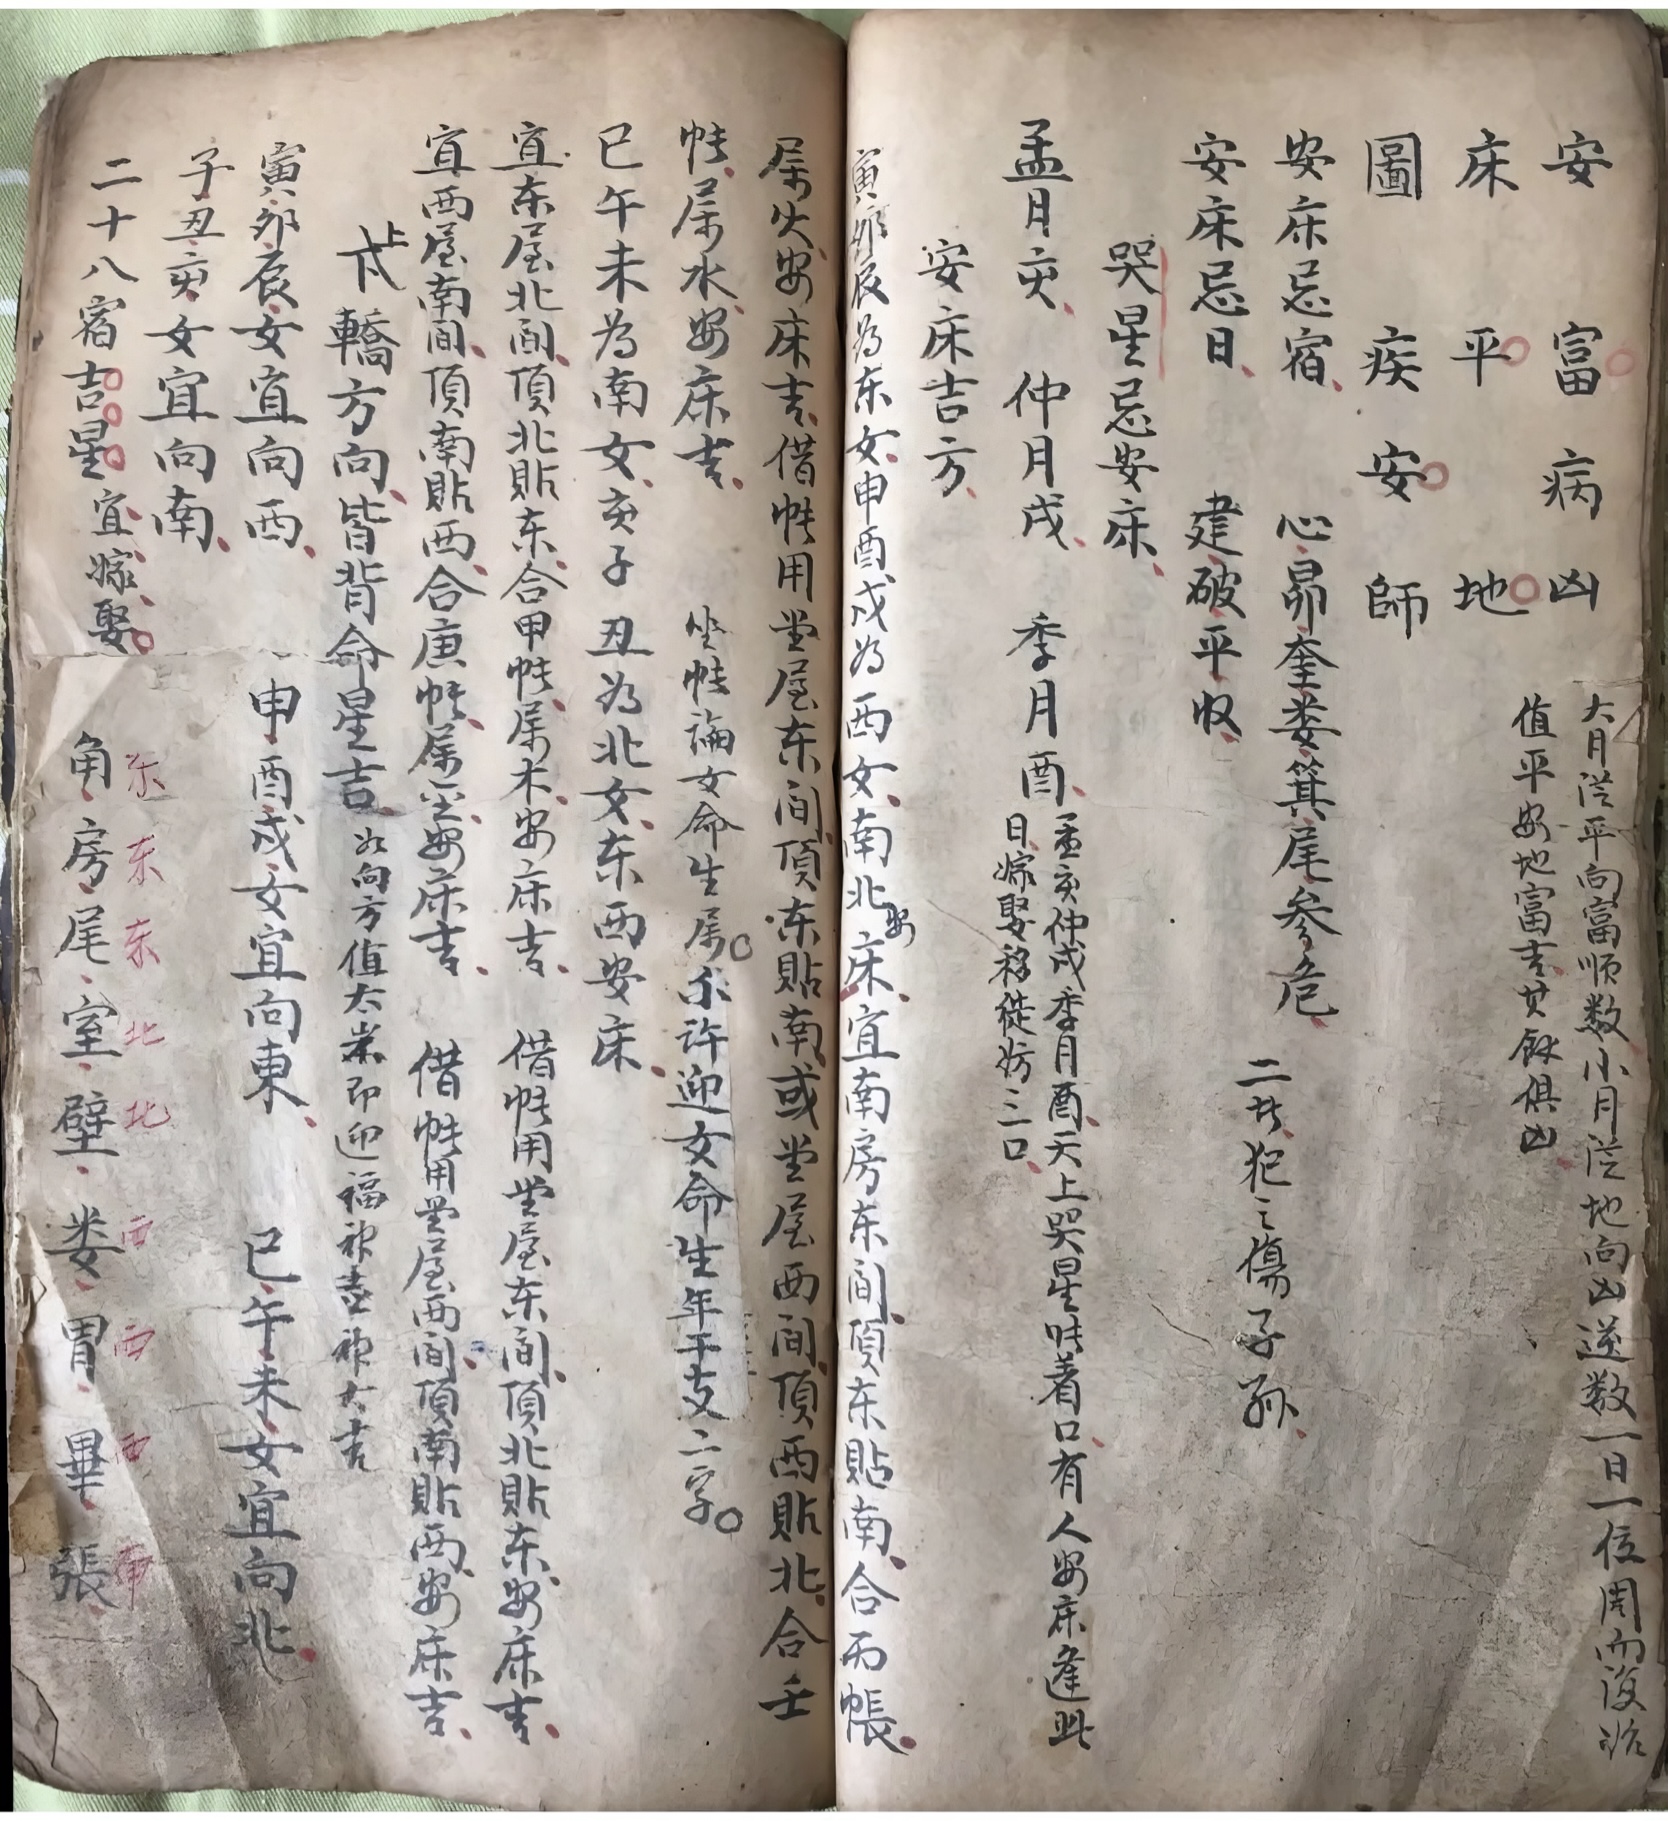 安 富 病 凶
大月從平向富順数小月從地向凶逆数一日一位周而復始
值平安地富吉其餘俱凶
床 平 地
圖 疾 安 師
安床忌宿 心昴奎娄箕尾参危
二共犯之傷子孫
安床忌日 建破平收
哭星忌安床
孟月亥 仲月戌 季月酉
孟亥仲戌季月酉天上哭星咲着口有人安床逢此
日嫁娶移徙妨三口
安床吉方
寅卯辰為东女申酉戌为西女南北安床宜南房东间頂东貼南合丙帳
属火安床吉借帐用堂屋东间頂东貼南或堂屋西间頂西貼北合壬
帐属水安床吉 坐帐論女命生属不许迎女命生年干支二字
巳午未为南女亥子丑为北女东西安床
宜东屋北间頂北貼东合甲帐属木安床吉 借帐用堂屋东间頂北貼东安床吉
宜西屋南间頂南貼西合庚帐属金安床吉 借帐用堂屋西间頂南貼西安床吉
上下轎方向皆背命星吉 如向方值太岁即迎福神喜神大吉
寅卯辰女宜向西 申酉戌女宜向東 巳午未女宜向北
子丑亥女宜向南
二十八宿吉星宜嫁娶 角房尾室壁娄胃畢張
东东东北北西西西南